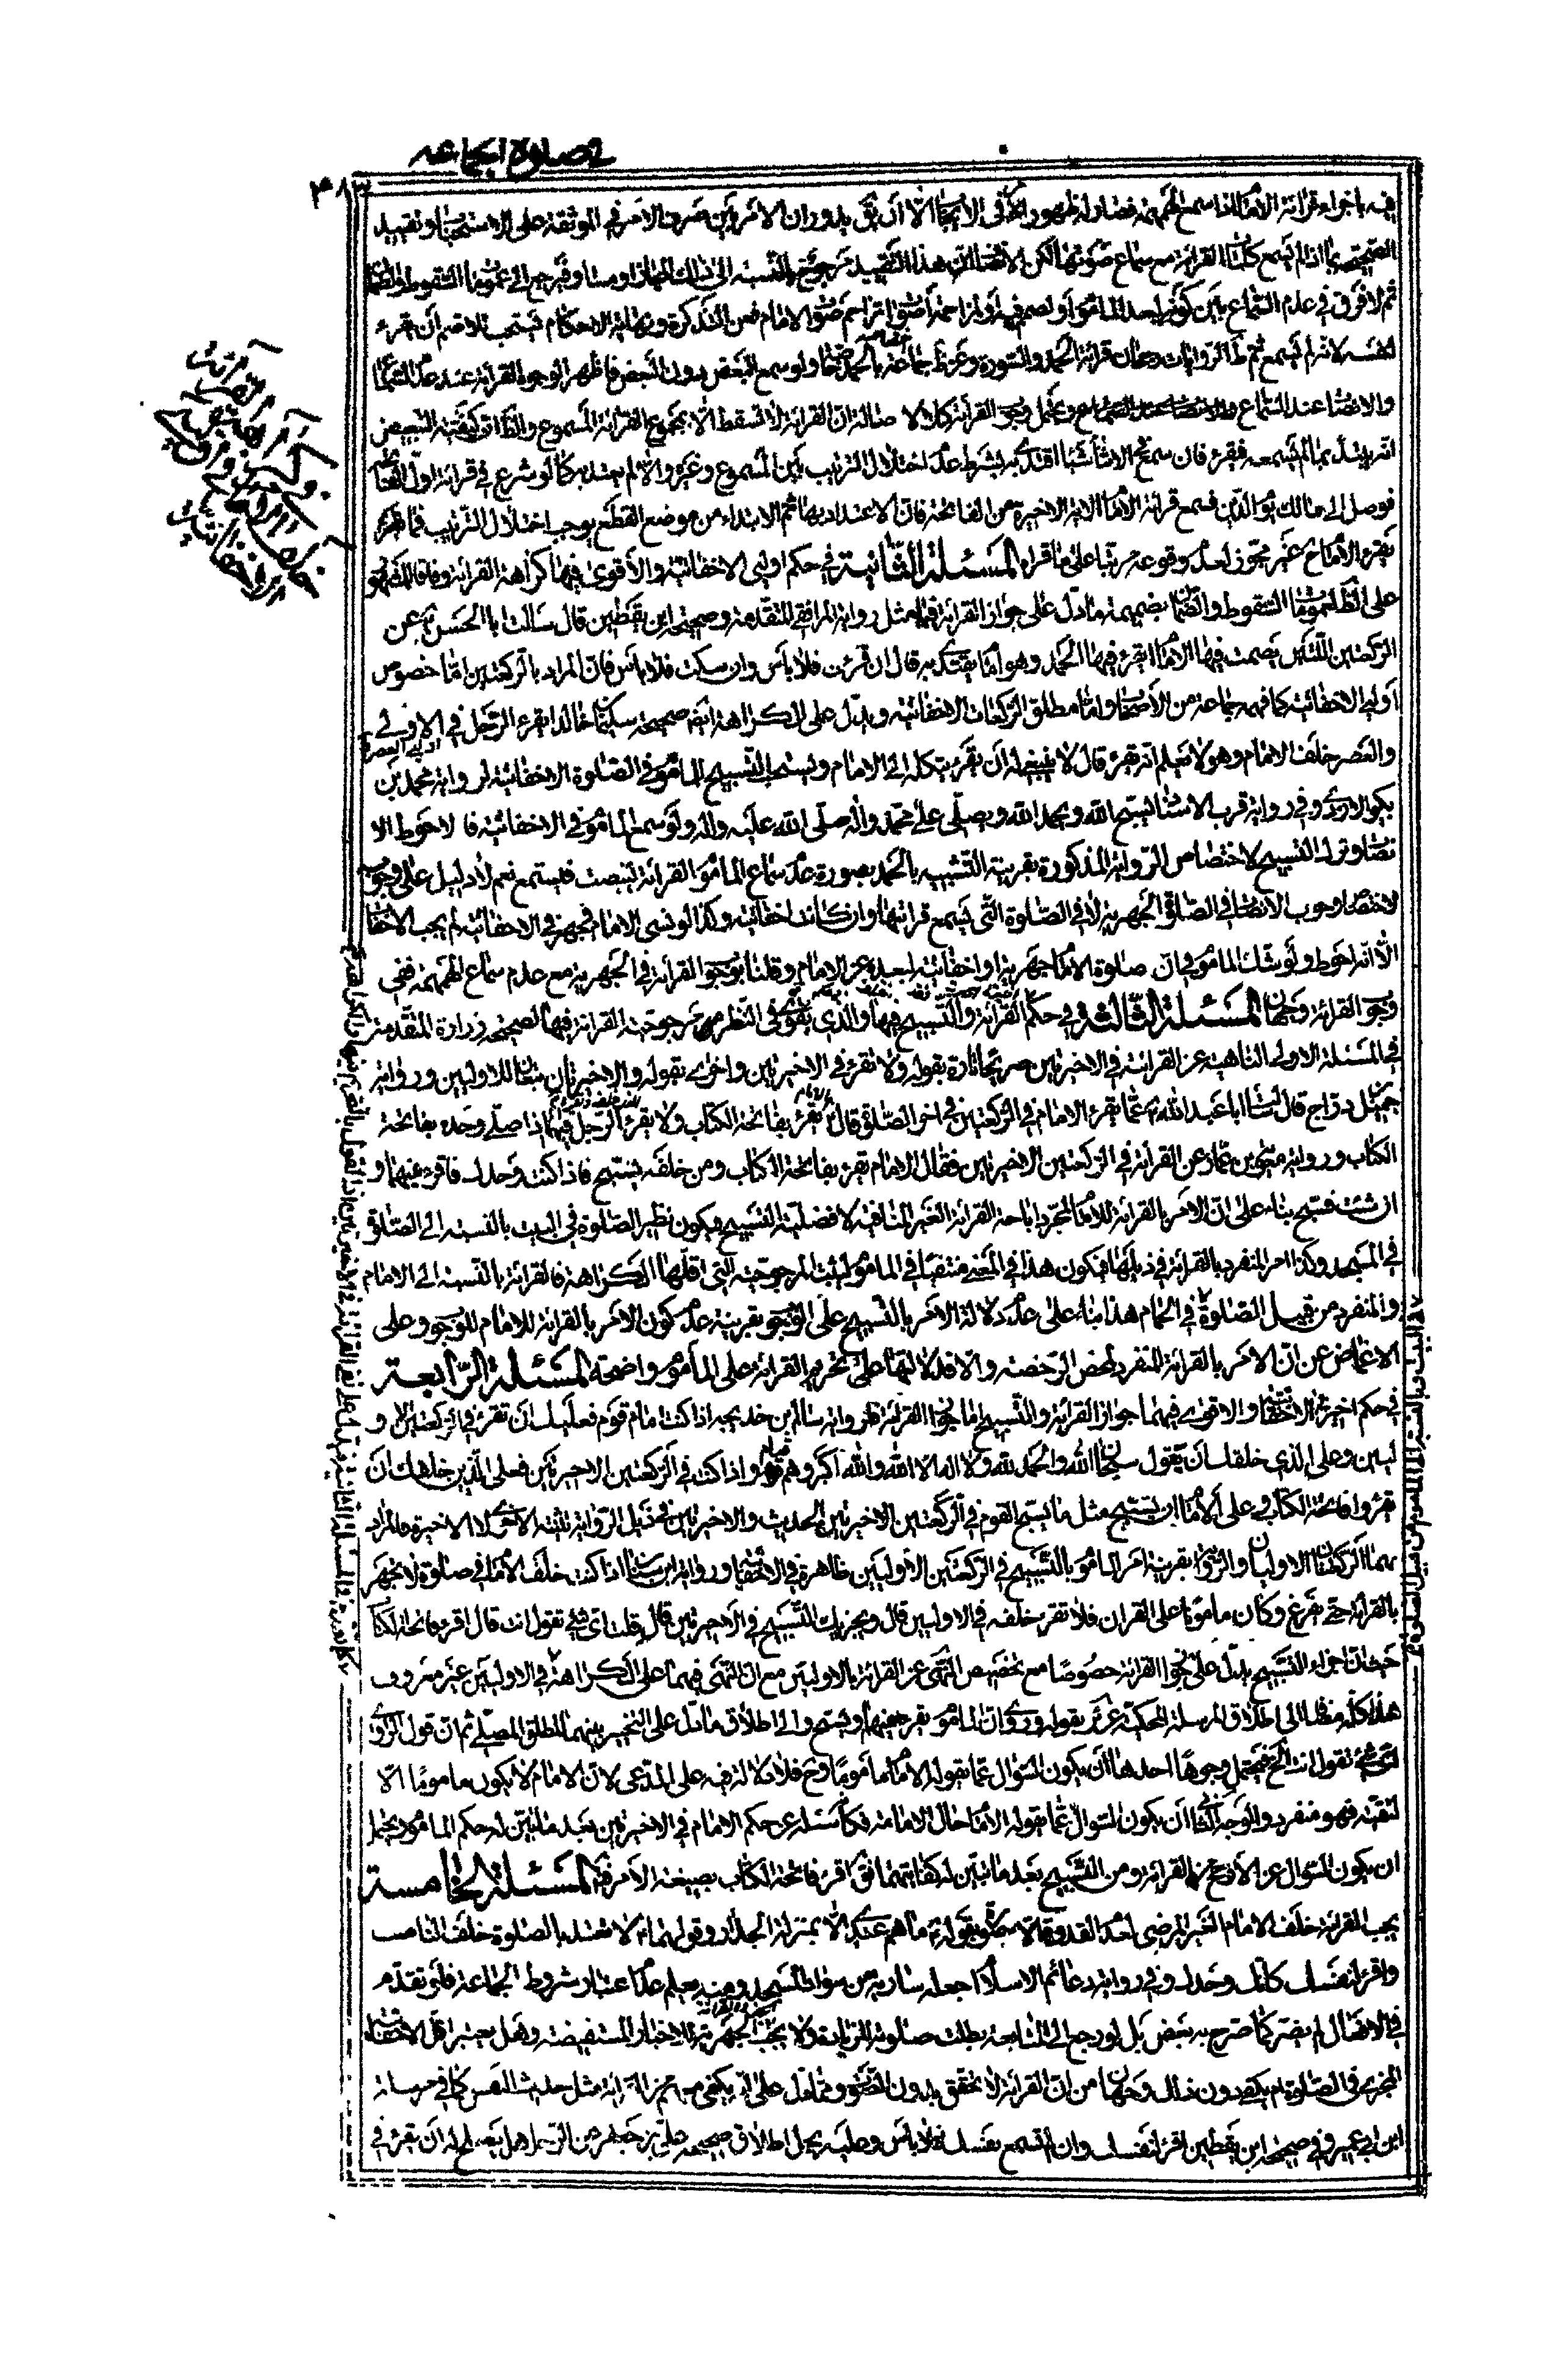 في صلوة الجماعة
٤١٣
فيه باجزاء قرائة الامام اذا سمع الهمهمة فصار له ظهور في الايجاب الا ان يق يدور ان الامر بين صرف الامر في الموثقة على الاستحباب وتقييد
الصحيحة بما اذا لم يسمع كلمات القرائة مع سماع صوتها لكن الانصاف ان هذا التقييد مرجوح بالنسبة الى ذلك الحمل او مساو فيرجع الى عموما السقوط والضمان
ثم لا فرق في عدم السماع بين كونه لبعد المأموم او لصمم فيه او لمزاحمة اصوات صوت الامام فعن التذكرة ونهاية الاحكام يستحب للاصم ان يقرء
لنفسه لانه لم يسمع ثم ظ الروايات رجحان قرائة الحمد والسورة وعن ظ جماعة بالحمد ولو سمع البعض دون البعض فاظهر الوجوه القرائة عند عدم السماع
والانصات عند السماع ويحتمل وجوب القرائة كلا لاصالة ان القرائة لا تسقط الا بمجموع القرائة المسموع والظ ان كيفية التبعيض
انه يبتدء بما لم يسمعه فيقرء فان سمع في الاثناء شيئا اقتدى به بشرط عدم اختلال الترتيب بين المسموع وغيره والا لم يعتد به كما لو شرع في قرائة اول الفاتحة
فوصل الى مالك يوم الدين فسمع قرائة الامام الاية الاخيرة من الفاتحة فان الاعتداد بها ثم الابتداء من موضع القطع يوجب اختلال الترتيب فما
يقرء الامام ح غير مجوز لعدم وقوعه مرتبا على ما قراه المسئلة الثانية في حكم اوليي الاخفاتية والاقوى فيها كراهة القرائة وفاقا للمشهور
على الظ لعمومات السقوط والضمان بضميمة ما دل على جواز القرائة فيها مثل رواية المرافقي المتقدمة وصحيحة ابن يقطين قال سالت ابا الحسن ع عن
الركعتين اللتين يصمت فيهما الامام ايقرء فيهما الحمد وهو امام يقتدى به قال ان قرئت فلا باس وان سكت فلا باس فان المراد بالركعتين اما خصوص
اوليي الاخفاتية كما فهمه جماعة من الاصحاب واما مطلق الركعات الاخفاتية ويدل على الكراهة ايض صحيحة سليمان بن خالد ايقرء الرجل في الاولى
والعصر خلف الامام وهو لا يعلم انه يقرء قال لا ينبغي له ان يقرء يكله الى الامام ويستحب التسبيح للمأموم في الصلوة الاخفاتية لرواية محمد بن
بكر الازدي وفي رواية قرب الاسناد يسبح الله ويحمد الله ويصلي على محمد واله صلى الله عليه واله ولو سمع المأموم في الاخفاتية فالاحوط الا
نصات وترك التسبيح لاختصاص الرواية المذكورة بقرينة التشبيه بالحمار بصورة عدم سماع المأموم القرائة لينصت فليستمع نعم لا دليل على وجوب
لاختصاص وجوب الانصات في الصلوة الجهرية لا في الصلوة التي يسمع قرائتها وان كانت اخفاتية وكذا لو نسي الامام فجهر في الاخفاتية لم يجب الانصات
الا انه احوط ولو يشك المأموم في ان صلوة الامام جهرية او اخفاتية لبعده عن الامام وقلنا بوجوب القرائة في الجهرية مع عدم سماع الهمهمة ففي
وجوب القرائة وجهان المسئلة الثالثة في حكم القرائة والتسبيح فيها والذي يقوى في النظر مرجوحية القرائة فيها لصحيحة زرارة المتقدمة
في المسئلة الاولى الناهية عن القرائة في الاخيرتين صريحا تارة بقوله ولا تقرء في الاخيرتين واخرى بقوله والاخيرتان تبعا للاوليين ورواية
جميل بن دراج قال سالت ابا عبد الله ع عما يقرء الامام في الركعتين في اخر الصلوة قال يقرء بفاتحة الكتاب ولا يقرء الرجل فيهما اذا صلى وحده بفاتحة
الكتاب ورواية معوية بن عمار عن القرائة في الركعتين الاخيرتين فقال الامام يقرء بفاتحة الكتاب ومن خلفه يسبح فاذا كنت وحدك فاقرء فيهما و
ان شئت فسبح بناء على ان الامر بالقرائة للامام لمجرد اباحة القرائة الغير المنافية لافضلية التسبيح ويكون نظير الصلوة في البيت بالنسبة الى الصلوة
في المسجد وكذا امر المنفرد بالقرائة في ذيلها فيكون هذا في المعنى منتفيا في المأموم ليثبت المرجوحية التي اقلها الكراهة فالقرائة بالنسبة الى الامام
والمنفرد من قبيل الصلوة في الحمام هذا بناء على عدم دلالة الامر بالتسبيح على الوجوب بقرينة عدم كون الامر بالقرائة للامام للوجوب وعلى
الاغماض عن ان الامر بالقرائة للمنفرد لمحض الرخصة والا فدلالتها على تحريم القرائة على المأموم واضحة المسئلة الرابعة
في حكم اخيرتي الاخفاتية والاقوى فيهما جواز القرائة والتسبيح اما جواز القرائة فلرواية سالم بن خديجة اذا كنت امام قوم فعليك ان تقرء في الركعتين الاو
ليين وعلى الذي خلفك ان يقول سبحان الله والحمد لله ولا اله الا الله والله اكبر وهم قيام واذا كنت في الركعتين الاخيرتين فعلى الذين خلفك ان
تقرؤا فاتحة الكتاب وعلى الامام ان يسبح مثل ما يسبح القوم في الركعتين الاخيرتين الحديث والاخيرتين في ذيل الرواية تثنية الاخرى لا الاخيرة فالمراد
بهما الركعتان الاوليان والرواية بقرينة امر المأموم بالتسبيح في الركعتين الاوليين ظاهرة في الاخفاتية ورواية ابن سنان اذا كنت خلف الامام في صلوة لا يجهر
بالقرائة حتى يفرغ وكان مامونا على القران فلا تقرء خلفه في الاوليين قال ويجزيك التسبيح في الاخيرتين قال قلت اي شئ تقول انت قال اقرء فاتحة الكتاب
حيث ان اجزاء التسبيح يدل على جواز القرائة خصوصا مع تخصيص النهي عن القرائة بالاوليين مع ان النهي فيهما على الكراهة في الاوليين غير معروف
هذا كله مضافا الى اطلاق المرسلة المحكية عن ئر بقوله وروى ان المأموم يقرء فيهما ويسبح والى اطلاق ما دل على التخيير بينهما لمطلق المصلي ثم ان قول الراوي
اي شئ تقول انت الخ فيحتمل وجوها احدها ان يكون السؤال عما يقوله الامام ماموما وح فلا دلالة فيه على المدعى لان الامام لا يكون ماموما الا
لتقية فهو منفرد والوجه الثاني ان يكون السؤال عما يقوله الامام حال الامامة فكأنه سئله عن حكم الامام في الاخيرتين بعد ما بين له حكم المأموم ويحتمل
ان يكون السؤال عن الارجح من القرائة ومن التسبيح بعد ما تبين له كفايتهما فق اقرء فاتحة الكتاب بصيغة الامر فيه المسئلة الخامسة
يجب القرائة خلف الامام الغير المرضي لعدم القدوة الا صورة بقوله ع ما هم عندي الا بمنزلة الجدر وقولهما ع لا تعتد بالصلوة خلف الناصب
واقرء لنفسك كانك وحدك وفي رواية دعائم الاسلام اجعله سارية من سواري المسجد ومنه يعلم عدم اعتبار شروط الجماعة فلو تقدم
في الافعال لم يضر كما صرح به بعض بل لو رجع الى المتابعة بطلت صلوته للزيادة ولا يجب الجهر للاخبار المستفيضة وهل يعتبر اقل الاخفات
المجزي في الصلوة ام يكفي دون ذلك وجهان من ان القرائة لا يتحقق بدون الصوت ومما دل على انه يكفي معهم من القرائة مثل حديث النفس كما في مرسلة
ابن ابي عمير وفي صحيحة ابن يقطين اقرء لنفسك وان لم تسمع نفسك فلا باس وعليه يحمل اطلاق صحيحة علي بن جعفر عن الرجل هل يصلح له ان يقرء في